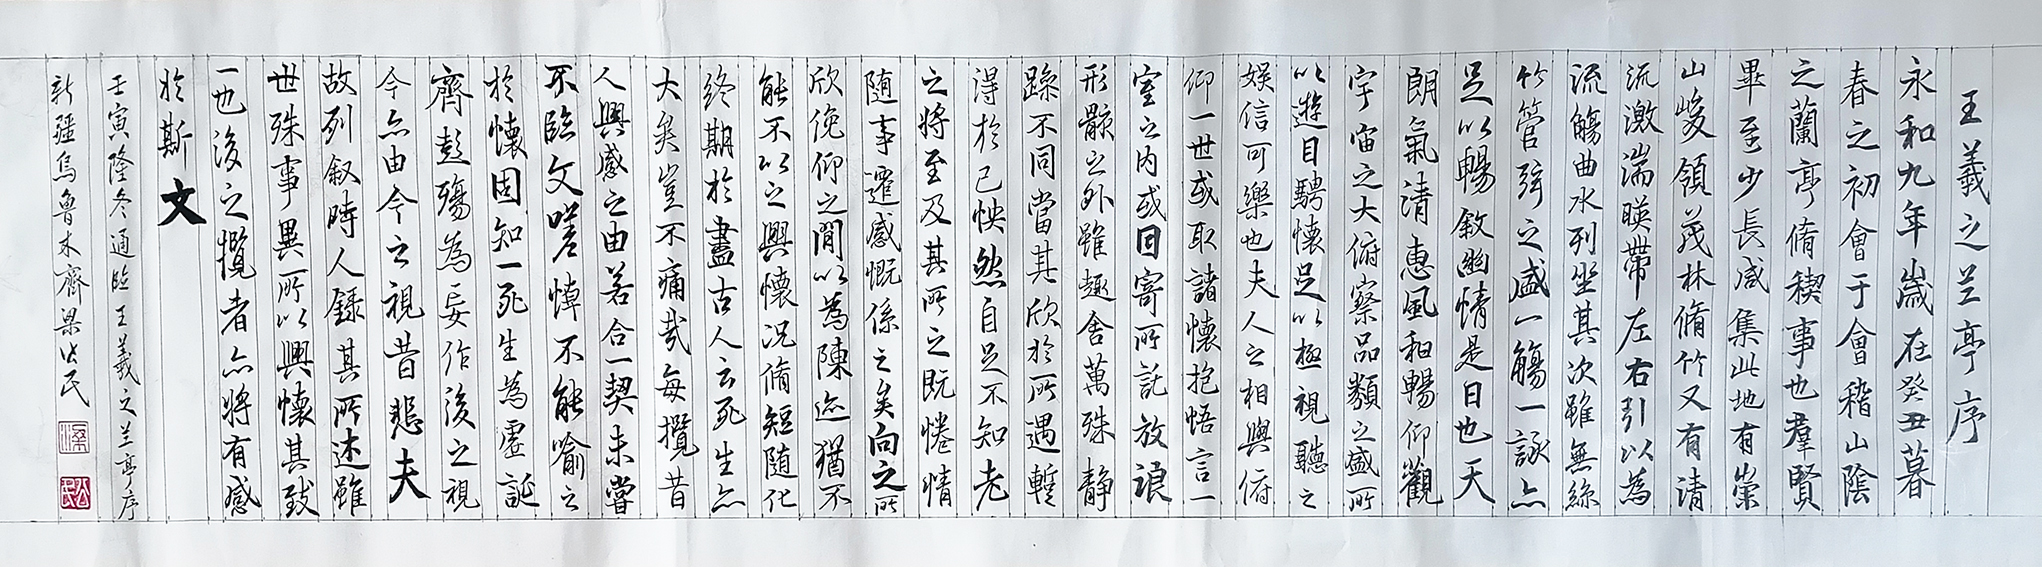 王羲之兰亭序
永和九年歲在癸丑暮
春之初會于會稽山陰
之蘭亭脩稧事也羣賢
畢至少長咸集此地有崇
山峻領茂林脩竹又有清
流激湍暎帶左右引以為
流觴曲水列坐其次雖無絲
竹管弦之盛一觴一詠亦
足以暢敘幽情是日也天
朗氣清惠風和暢仰觀
宇宙之大俯察品類之盛所
以遊目騁懷足以極視聽之
娛信可樂也夫人之相與俯
仰一世或取諸懷抱悟言一
室之内或因寄所託放浪
形骸之外雖趣舍萬殊静
躁不同當其欣於所遇蹔
得於己怏然自足不知老
之將至及其所之既惓情
随事遷感慨係之矣向之所
欣俛仰之閒以為陳迹猶不
能不以之興懷况脩短随化
終期於盡古人云死生亦
大矣豈不痛哉每攬昔
人興感之由若合一契未嘗
不臨文嗟悼不能喻之
於懷固知一死生為虛誕
齊彭殤為妄作後之視
今亦由今之視昔悲夫
故列叙時人錄其所述雖
世殊事異所以興懷其致
一也後之攬者亦將有感
於斯文
壬寅隆冬通臨王羲之兰亭序
新疆烏魯木齊梁公民